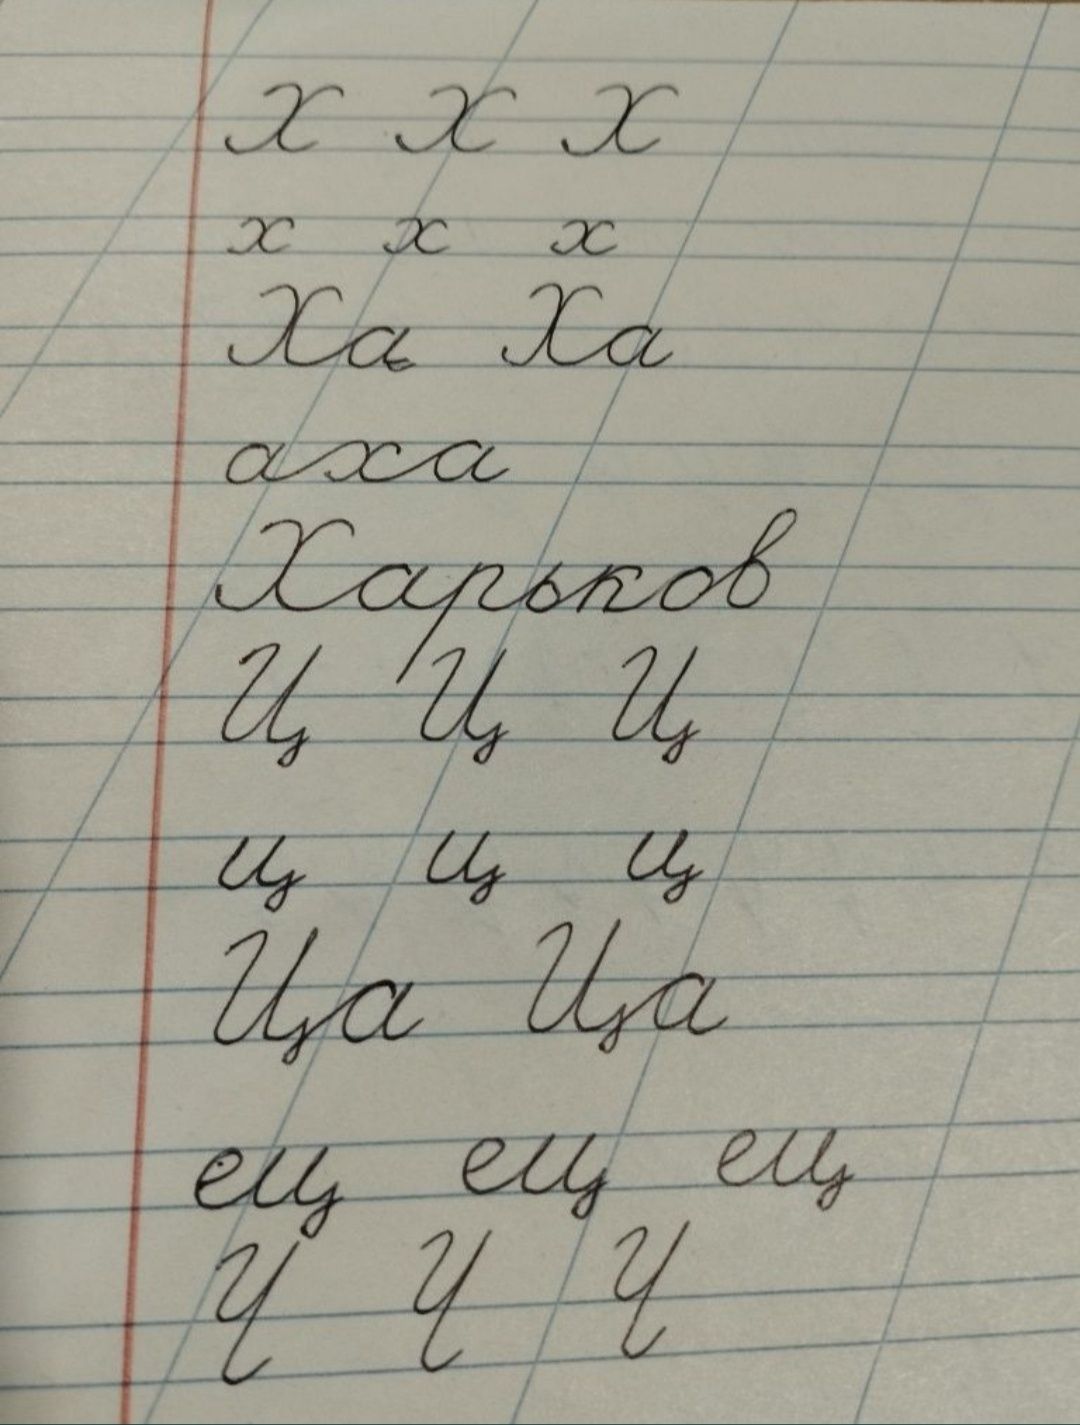 Х Х Х
х х х
Ха Ха
аха
Харьков
Ц Ц Ц
ц ц ц
Ца Ца
ец ец ец
Ч Ч Ч